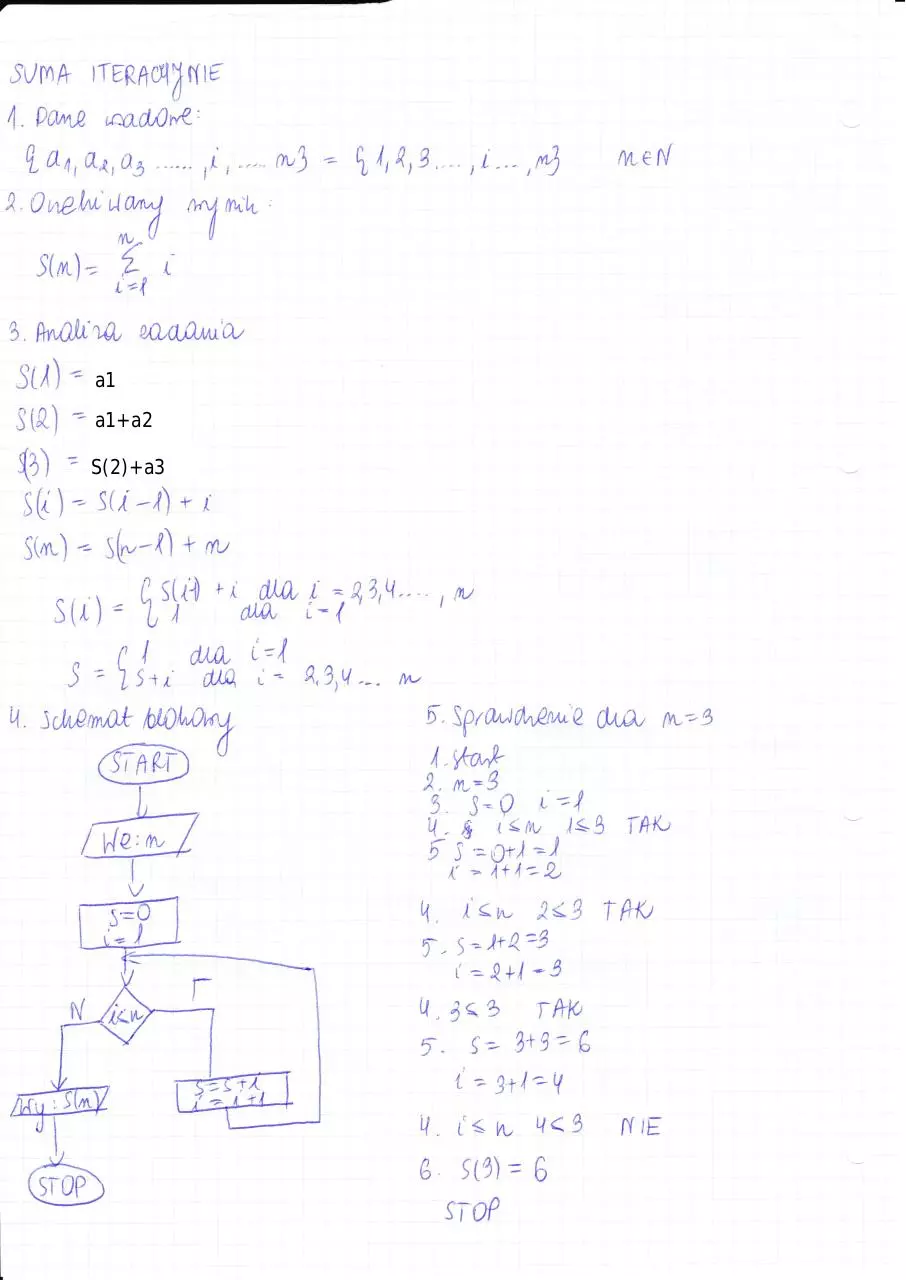 SUMA ITERACYJNIE
1. Dane wadowe:
{ a1, a2, a3 ......, i, ..... n} = { 1, 2, 3 ...., i ...., n} n∈N
2. Oczekiwany wynik:
S(n) = n Σ i=1 i
3. Analiza zadania
S(1) = a1
S(2) = a1+a2
S(3) = S(2)+a3
S(i) = S(i-1) + i
S(n) = S(n-1) + n
S(i) = { S(i-1) + i dla i = 2,3,4...., n
{ 1 dla i=1
S = { 1 dla i=1
{ S+i dla i = 2,3,4... n
4. Schemat blokowy
START
We: n
S=0
i=1
i≤n
N
T
S=S+i
i=i+1
Wy: S(n)
STOP
5. Sprawdzenie dla n=3
1. Start
2. n=3
3. S=0 i=1
4. i≤n 1≤3 TAK
5 S=0+1=1
i=1+1=2
4. i≤n 2≤3 TAK
5. S=1+2=3
i=2+1=3
4. 3≤3 TAK
5. S= 3+3=6
i=3+1=4
4. i≤n 4≤3 NIE
6. S(3) = 6
STOP